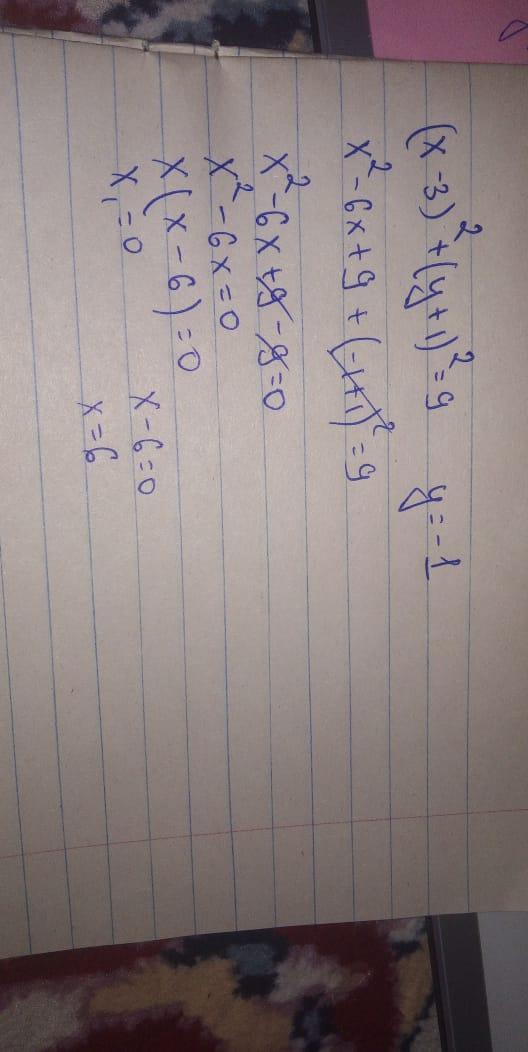 (x-3)²+(y+1)²=9 y=-1
x²-6x+9+(-1+1)²=9
x²-6x+9-9=0
x²-6x=0
x(x-6)=0
x₁=0 x-6=0
x=6